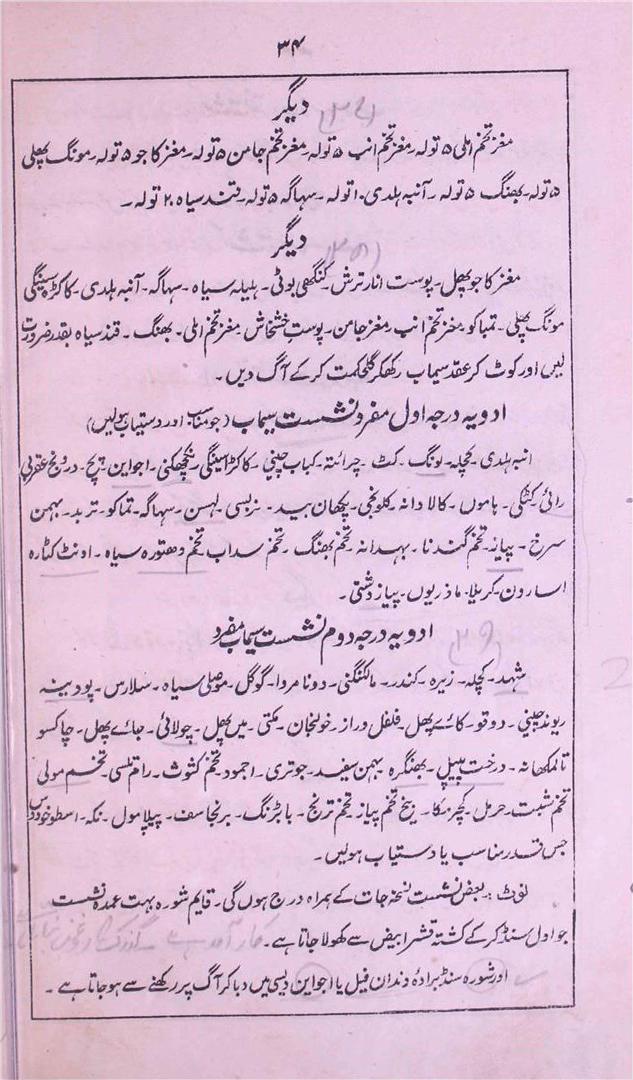 ۳۴
دیگر
مغز تخم املی ۵ تولہ۔ مغز تخم انب ۵ تولہ۔ مغز تخم جامن ۵ تولہ۔ مغز کاجو ۵ تولہ۔ مونگ پھلی
۵ تولہ۔ بھنگ ۵ تولہ۔ آنبہ ہلدی ۱۰ تولہ۔ سہاگہ ۵ تولہ۔ قند سیاہ ۲۰ تولہ۔
دیگر
مغز کاجو پھل۔ پوست انار ترش۔ کنگھی بوٹی۔ ہلیلہ سیاہ۔ سہاگہ۔ آنبہ ہلدی۔ کاکڑہ سینگی
مونگ پھلی۔ تمباکو۔ مغز تخم انب۔ مغز جامن۔ پوست خشخاش۔ مغز تخم املی۔ بھنگ۔ قند سیاہ بقدر ضرورت
لیں اور کوٹ کر عقد سیماب رکھکر گلحکمت کر کے آگ دیں۔
ادویہ درجہ اول مفرد نشست سیماب (جو مناسب اور دستیاب ہوئیں)
انبہ ہلدی۔ کچلہ۔ لونگ۔ کٹ۔ چرائتہ۔ کباب چینی۔ کاکڑا سینگی۔ نکچھکنی۔ اجواین۔ بچ۔ درونج عقربی
رائی۔ کٹکی۔ ہاموں۔ کالا دانہ۔ کلونجی۔ پکھان بید۔ نربسی۔ لہسن۔ سہاگہ۔ تماکو۔ تربد۔ بہمن
سرخ۔ پیاز۔ تخم گندنا۔ بہدانہ۔ تخم بھنگ۔ تخم سداب۔ تخم دھتورہ سیاہ۔ اونٹ کٹارہ
اسارون۔ کریلا۔ ماذریوں۔ پیاز دشتی۔
ادویہ درجہ دوم نشست سیماب مفرد
شہد۔ کچلہ۔ زیرہ۔ کندر۔ مالکنگنی۔ دونا مروا۔ گوگل۔ موصلی سیاہ۔ سلارس۔ پودینہ
ریوند چینی۔ دوقو۔ کائے پھل۔ فلفل دراز۔ خولنجان۔ مکتی۔ میں پھل۔ چولائی۔ جائے پھل۔ چاکسو
تالمکھانہ۔ درخت پیپل۔ بھنگرہ۔ بہمن سفید۔ جوتری۔ اجمود۔ تخم کثوث۔ رام تلسی۔ تخم مولی
تخم شبت۔ حرمل۔ کچر مکا۔ بیخ تخم پیاز۔ تخم ترنج۔ بابڑنگ۔ برنجاسف۔ پیپلامول۔ نکہ۔ اسطوخودوس
جس قدر مناسب یا دستیاب ہوئیں۔
نوٹ:۔ بعض نشست نسخہ جات کے ہمراہ درج ہوں گی۔ قایم شورہ بہت عمدہ نشست
جو اول سنڈ کر کے کشتہ قشر ابیض سے کھولا جاتا ہے۔
اور شورہ سنڈ برادہ دندان فیل یا اجواین دیسی میں دبا کر آگ پر رکھنے سے ہو جاتا ہے۔